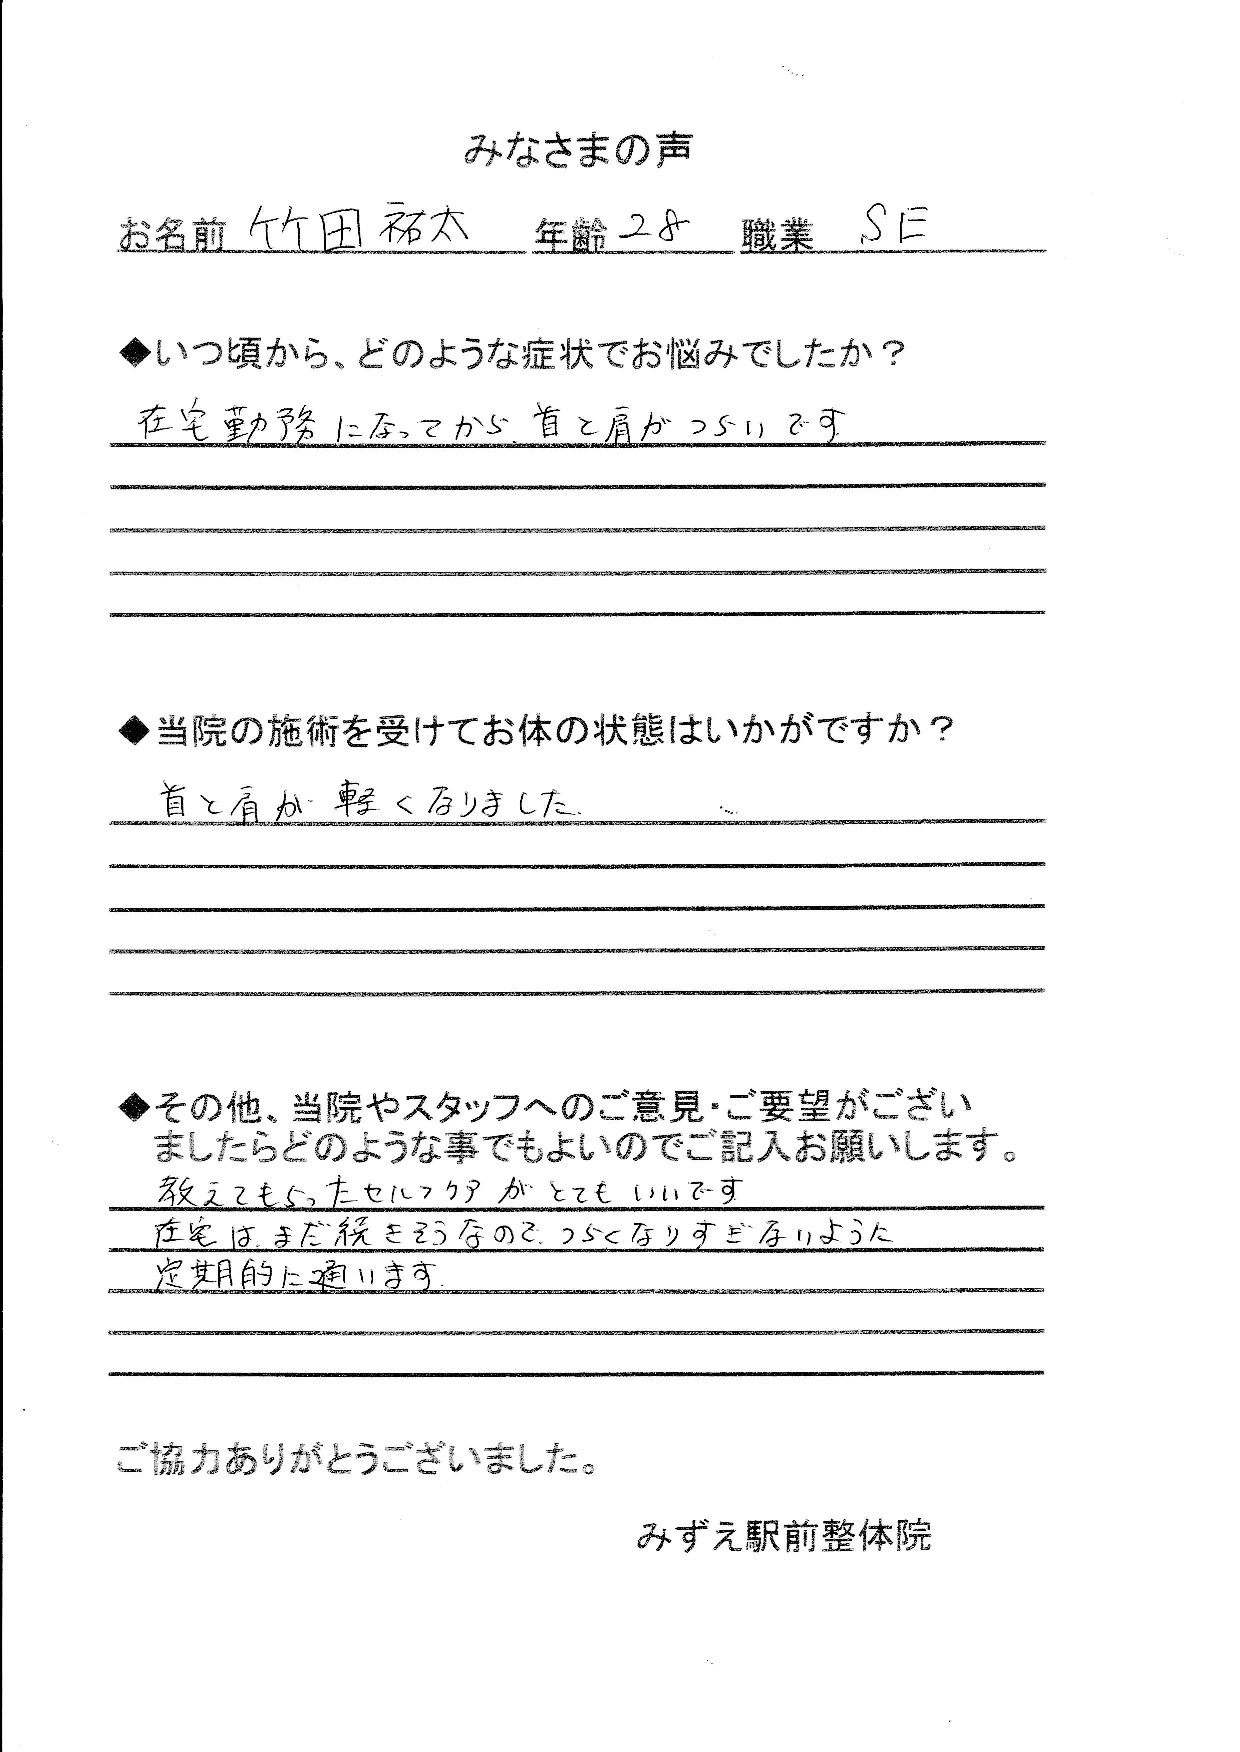 みなさまの声
お名前 竹田 祐太 年齢 28 職業 SE
◆いつ頃から、どのような症状でお悩みでしたか？
在宅勤務になってから、首と肩がつらいです
◆当院の施術を受けてお体の状態はいかがですか？
首と肩が軽くなりました。
◆その他、当院やスタッフへのご意見・ご要望がござい
ましたらどのような事でもよいのでご記入お願いします。
教えてもらったセルフケアがとてもいいです
在宅は、まだ続きそうなので、つらくなりすぎないように
定期的に通います。
ご協力ありがとうございました。
みずえ駅前整体院